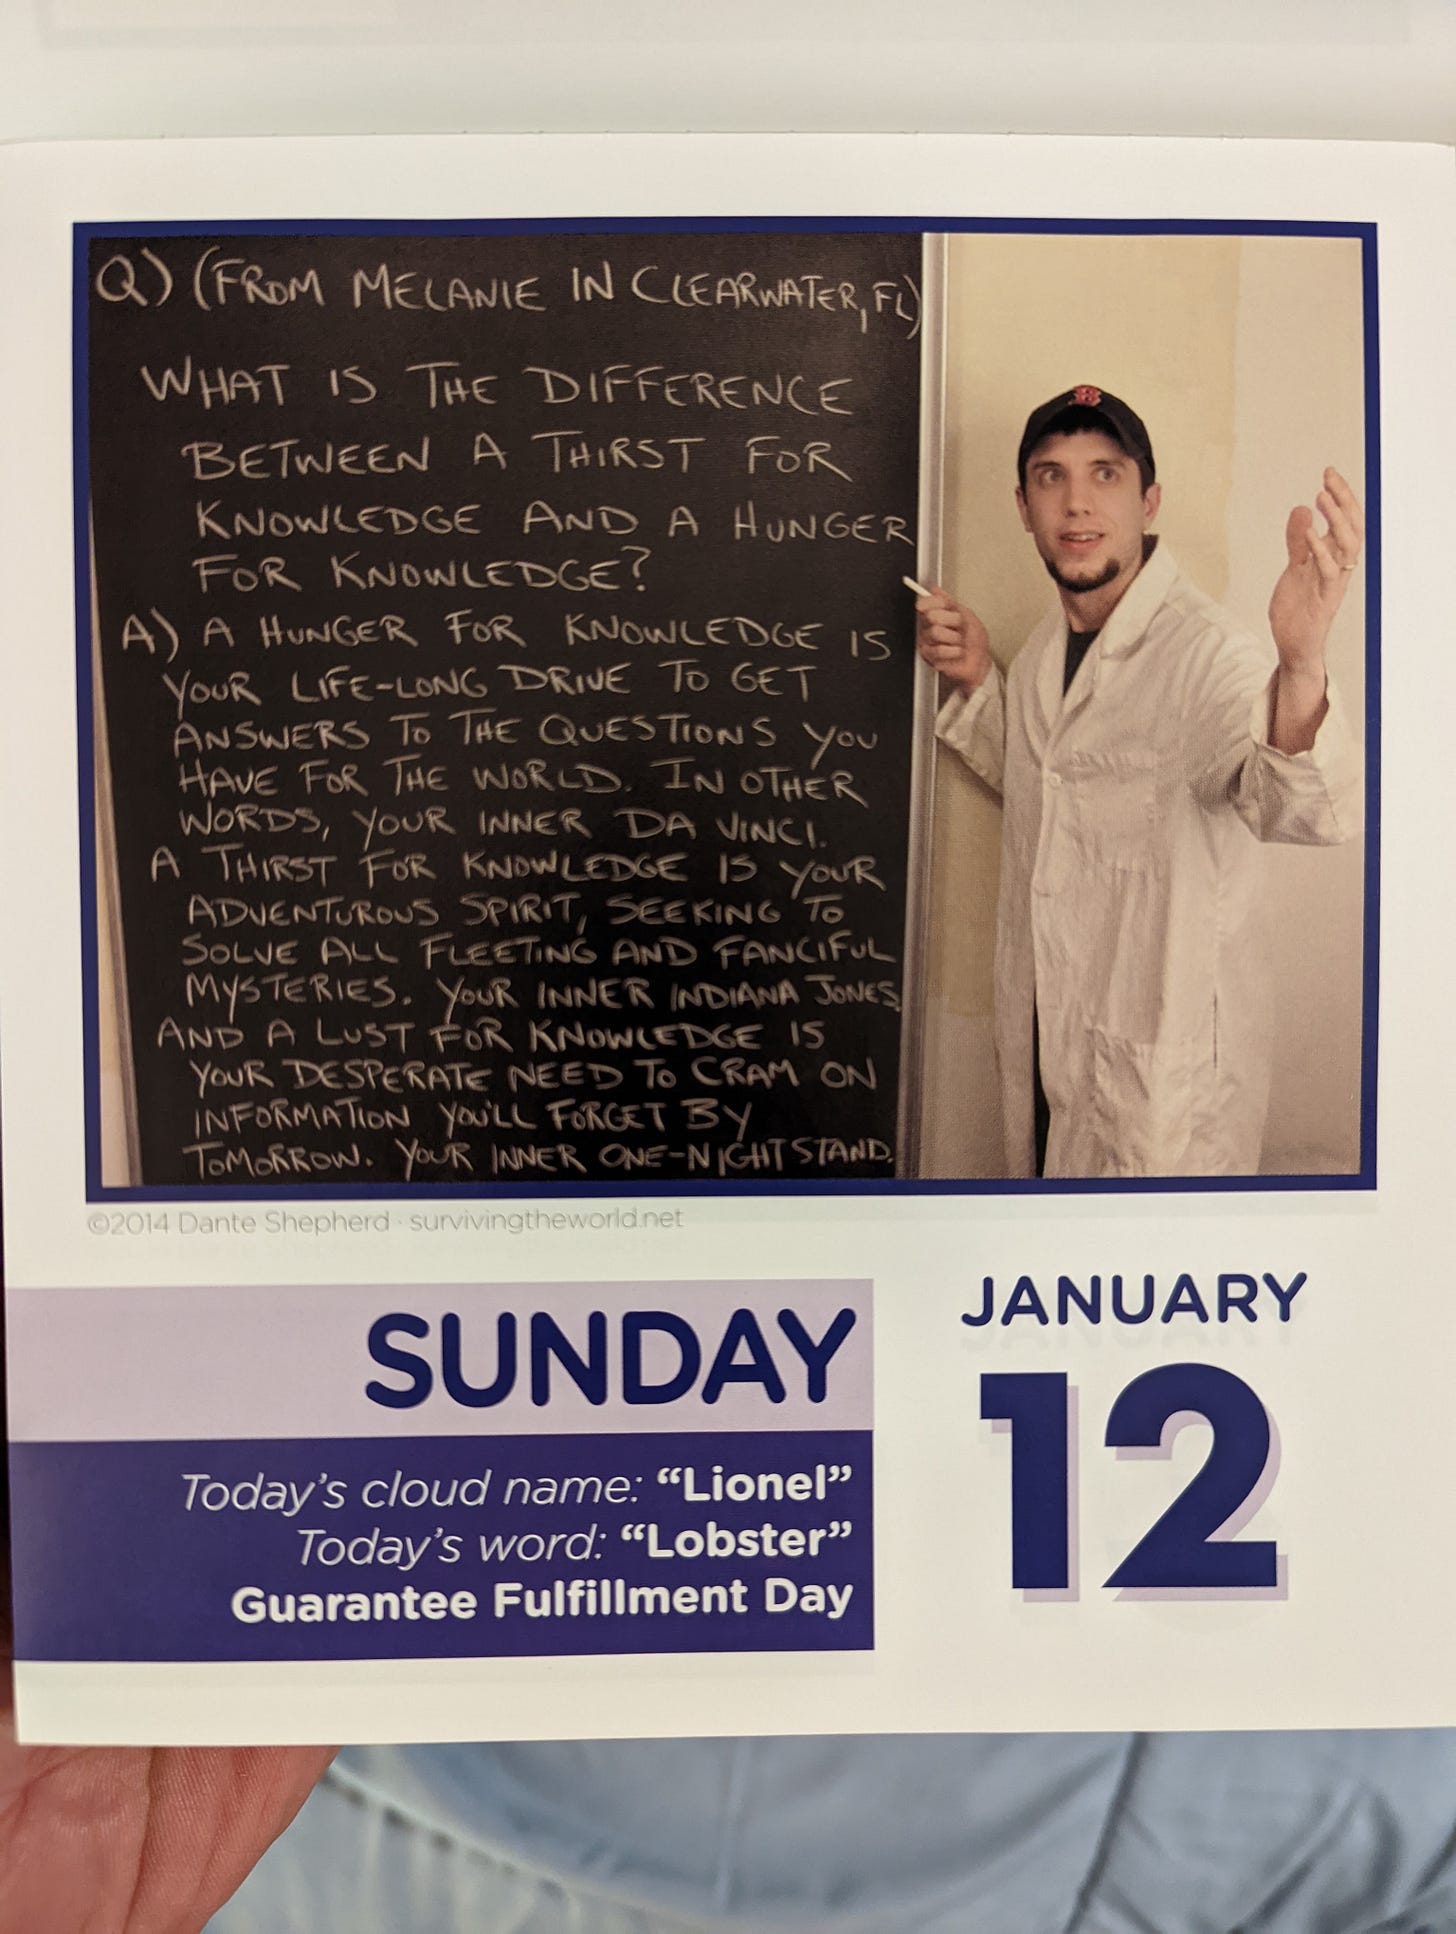 Q) (FROM MELANIE IN CLEARWATER, FL)
WHAT IS THE DIFFERENCE
BETWEEN A THIRST FOR
KNOWLEDGE AND A HUNGER
FOR KNOWLEDGE?
A) A HUNGER FOR KNOWLEDGE IS
YOUR LIFE-LONG DRIVE TO GET
ANSWERS TO THE QUESTIONS YOU
HAVE FOR THE WORLD. IN OTHER
WORDS, YOUR INNER DA VINCI.
A THIRST FOR KNOWLEDGE IS YOUR
ADVENTUROUS SPIRIT, SEEKING TO
SOLVE ALL FLEETING AND FANCIFUL
MYSTERIES. YOUR INNER INDIANA JONES.
AND A LUST FOR KNOWLEDGE IS
YOUR DESPERATE NEED TO CRAM ON
INFORMATION YOU'LL FORGET BY
TOMORROW. YOUR INNER ONE-NIGHT STAND.
B
©2014 Dante Shepherd · survivingtheworld.net
SUNDAY
JANUARY
12
Today's cloud name: "Lionel"
Today's word: "Lobster"
Guarantee Fulfillment Day